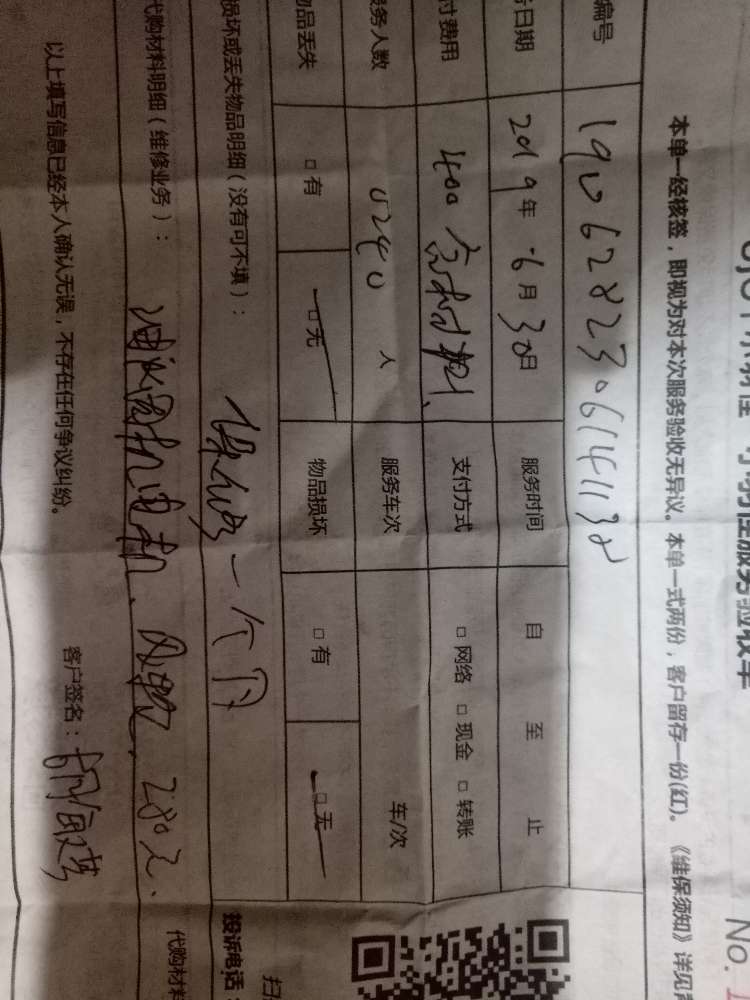 服务验收单
No.
本单一经核签，即视为对本次服务验收无异议。本单一式两份，客户留存一份(红)。《维保须知》详见
编号 1906282306141138
日期 2019年 6月 30日 服务时间 自 至 止
付费用 400 含材料 支付方式 □ 网络 □ 现金 □ 转账
服务人数 0240 人 服务车次 车/次
物品丢失 □ 有 □ 无 物品损坏 □ 有 □ 无
损坏或丢失物品明细（没有可不填）： 保修一个月
投诉电话：
代购材料明细（维修业务）： 油烟机电机、 280元.
代购材料
以上填写信息已经本人确认无误，不存在任何争议纠纷。 客户签名：